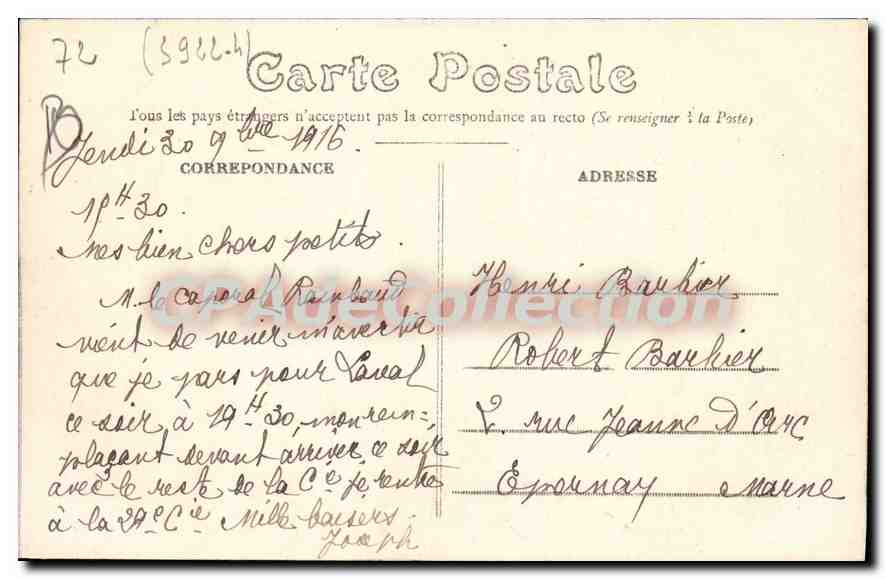 72 (3922-4)
Carte Postale
Tous les pays étrangers n'acceptent pas la correspondance au recto (Se renseigner à la Poste)
Jeudi 30 9bre 1916.
CORREPONDANCE
15H30.
Mes bien chers petits.
M. le caporal Rainbaud
vient de venir m'avertir
que je pars pour Laval
ce soir à 19H30, mon rem=
plaçant devant arriver ce soir
avec le reste de la Cie je rentre
à la 29e Cie Mille baisers.
Joseph
ADRESSE
Henri Barbier
Robert Barbier
2. rue Jeanne D'Arc
Épernay Marne
CPAdeCollection